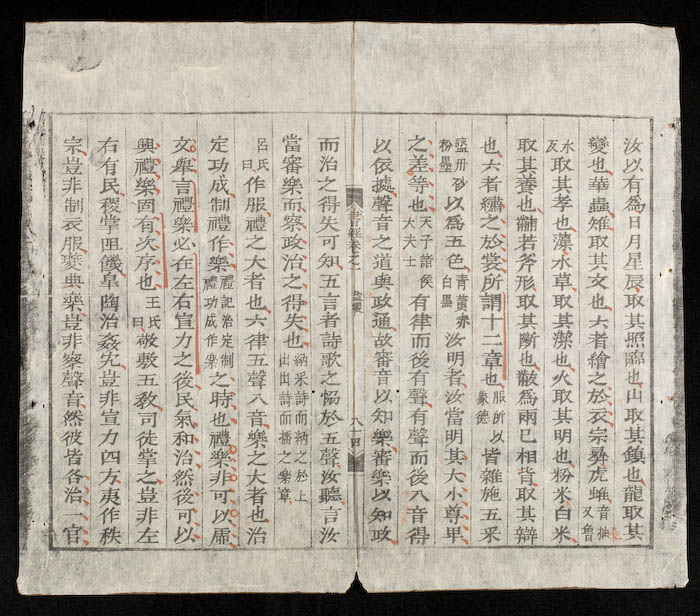 汝以有爲日月星辰取其照臨也山取其鎭也龍取其
變也華蟲雉取其文也六者繪之於衣宗彝虎蜼音抽又魯
水反取其孝也藻水草取其潔也火取其明也粉米白米
取其養也黼若斧形取其斷也黻爲兩已相背取其辯
也六者繡之於裳所謂十二章也服所以象德皆雜施五采
藍丹砂粉墨以爲五色青黃赤白黑汝明者汝當明其大小尊卑
之差等也天子諸侯大夫士有律而後有聲有聲而後八音得
以依據聲音之道與政通故審音以知樂審樂以知政
書經卷之一 益稷 八十四
而治之得失可知五言者詩歌之恊於五聲汝聽言汝
當審樂而察政治之得失也納采詩而納之於上出出詩而播之樂章
呂氏曰作服禮之大者也六律五聲八音樂之大者也治
定功成制禮作樂禮記治定制禮功成作樂之時也禮樂非可以虛
文舉言禮樂必在左右宣力之後民氣和洽然後可以
興禮樂固有次序也王氏曰敬敷五敎司徒掌之豈非左
右有民稷掌阻饑皐陶治姦宄豈非宣力四方夷作秩
宗豈非制衣服夔典樂豈非察聲音然彼皆各治一官